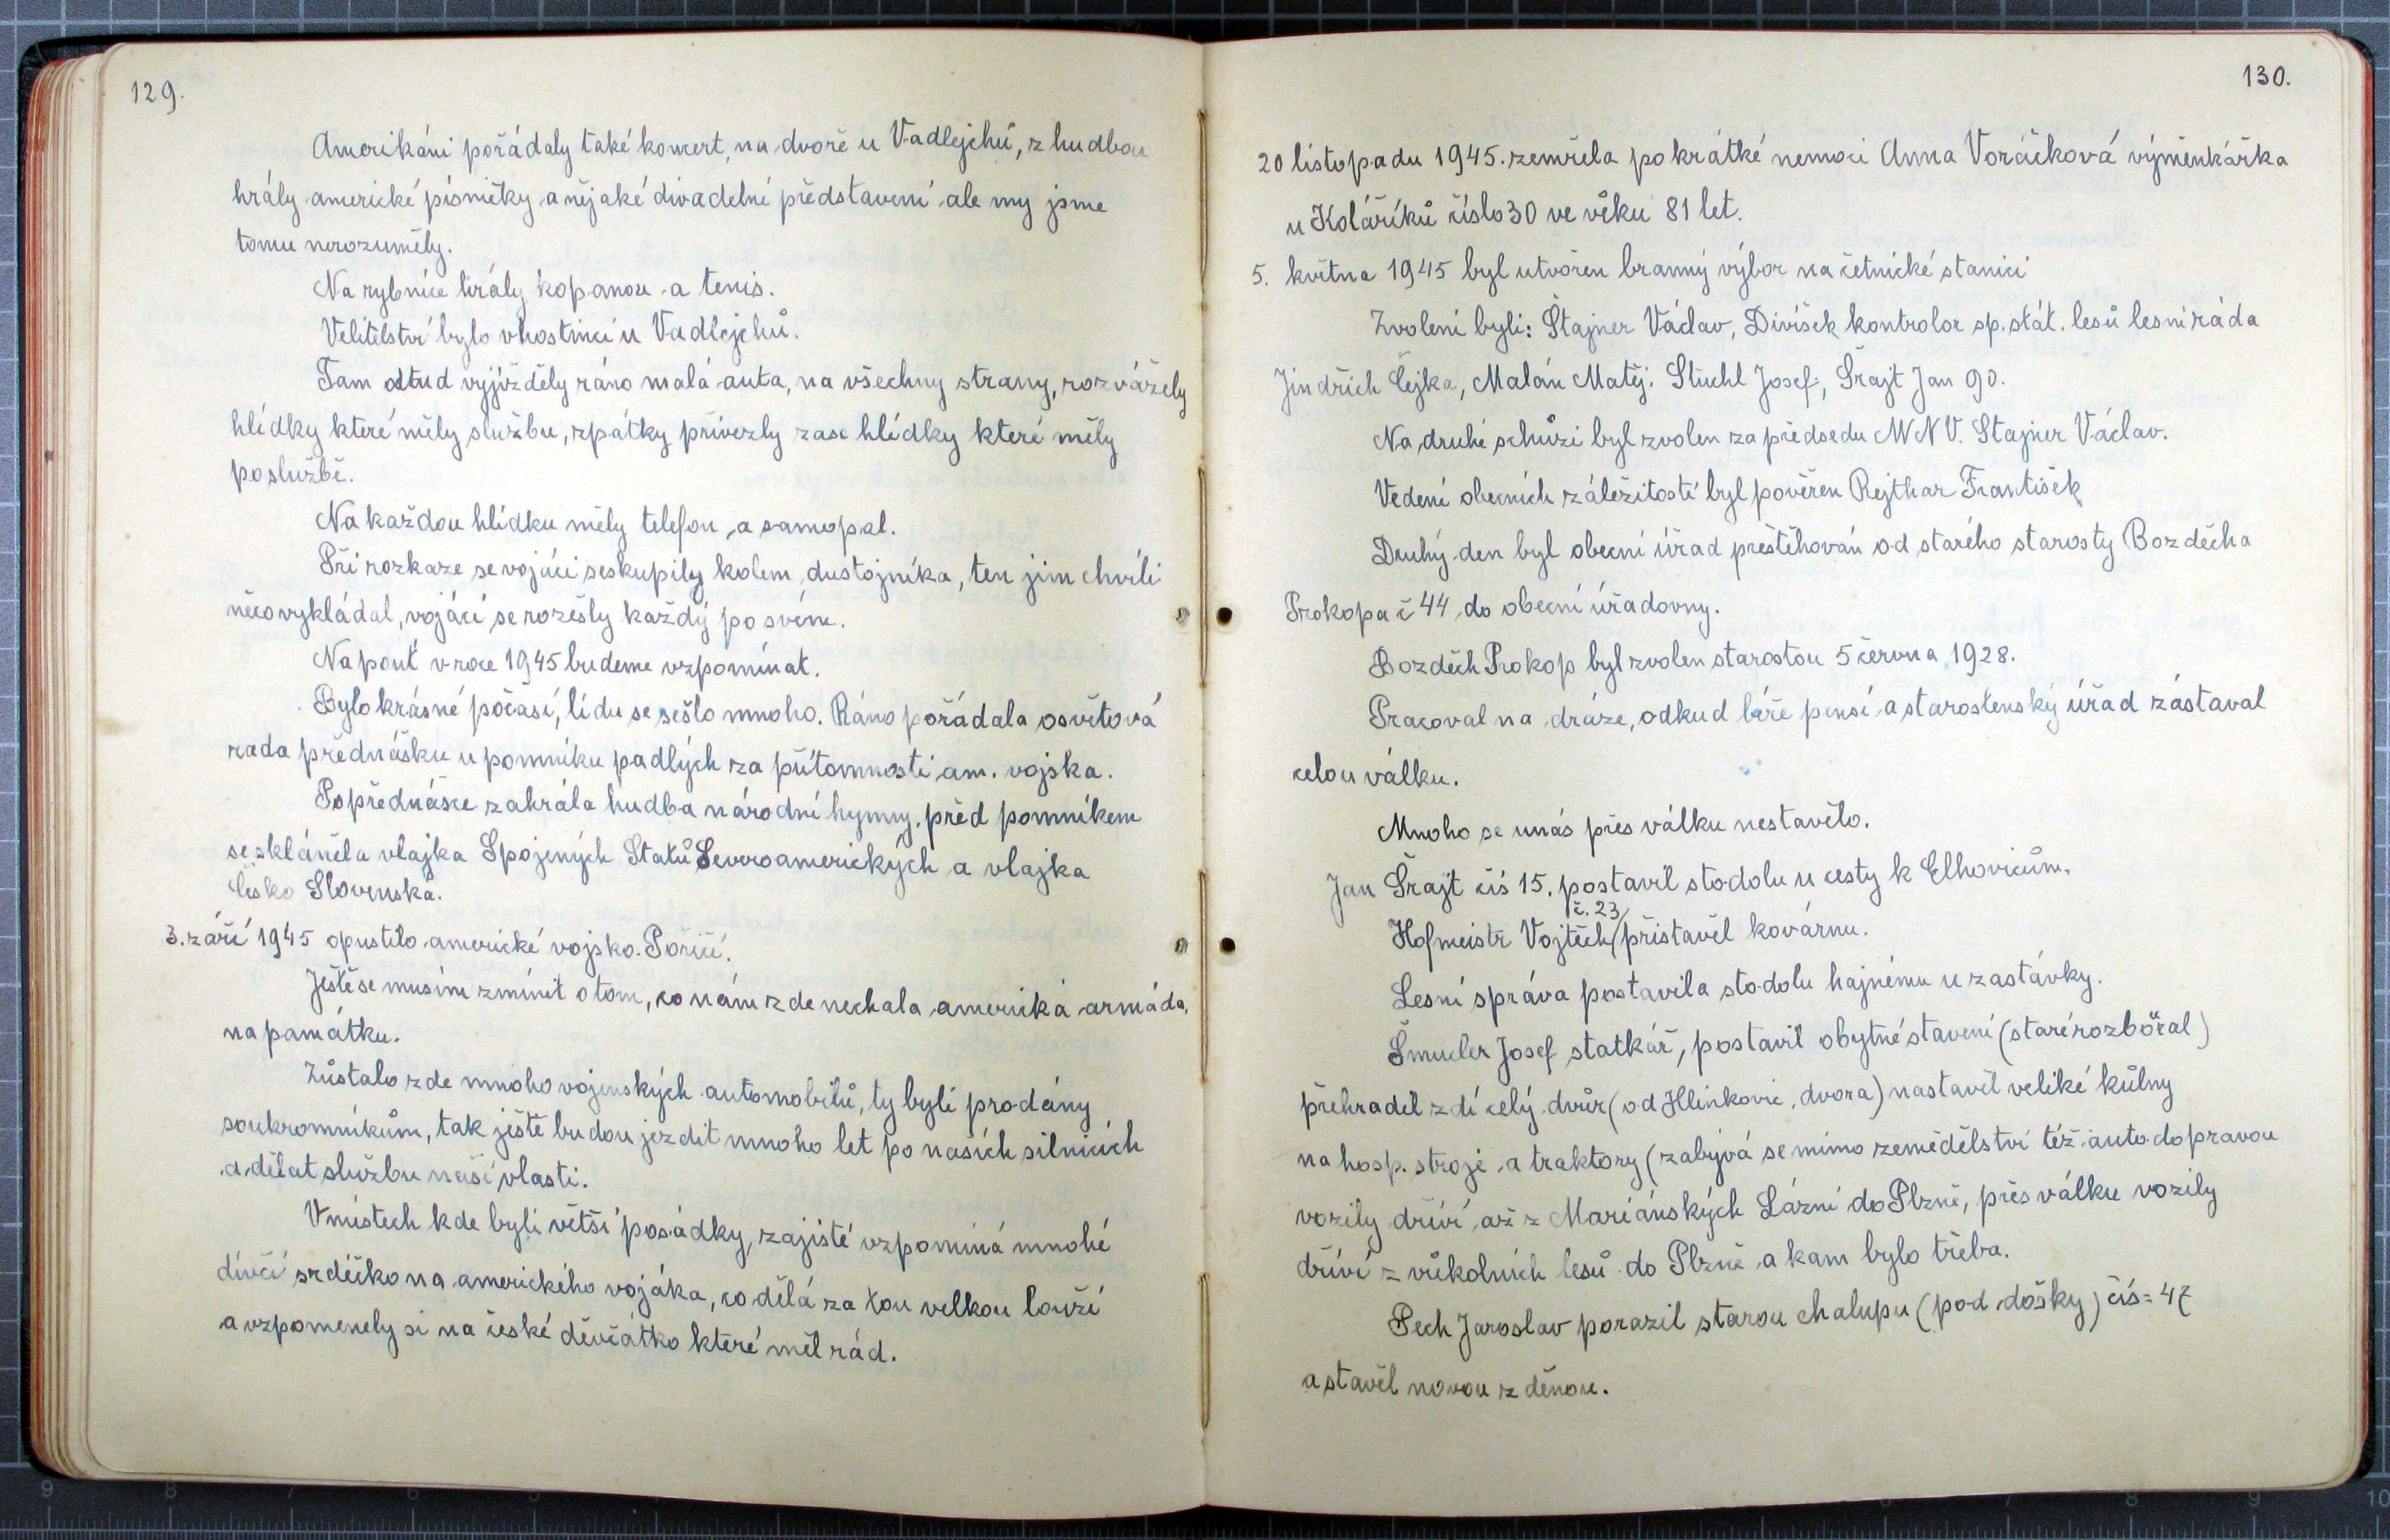 129.
Amerikáni pořádaly také koncert, na dvoře u Vadlejchů, z hudbou
hrály americké písničky a nějaké divadelní představení ale my jsme
tomu nerozuměly.
Na rybníce hrály kopanou a tenis.
Velitelství bylo vhostinci u Vadlejchů.
Tam odtud vyjížděly ráno malá auta, na všechny strany, rozvážely
hlídky které měly službu, zpátky přivezly zase hlídky které měly
poslužbě.
Na každou hlídku měly telefon a samopal.
Při rozkaze se vojáci seskupily kolem dustojníka, ten jim chvíli
něco vykládal, vojáci se rozešly každý po svém.
Na pouť v roce 1945 budeme vzpomínat.
Bylo krásné počasí, lidu se sešlo mnoho. Ráno pořádala osvětová
rada přednášku u pomníku padlých za přítomnosti am. vojska.
Popřednásce zahrála hudba národní hymny, před pomníkem
se skláněla vlajka Spojených Statů Severoamerických a vlajka
Česko Slovenska.
3. září 1945 opustilo americké vojsko Poříčí.
Ještě se musím zmínit o tom, co nám zde nechala americká armáda,
na památku.
Zůstalo zde mnoho vojenských automobilů, ty byli prodány
soukromníkům, tak ještě budou jezdit mnoho let po našich silnicích
a dělat službu naší vlasti.
Vmístech kde byli větší posádky, zajisté vzpomíná mnohé
dívčí srdéčko na amerického vojáka, co dělá za tou velkou louží
a vzpomenely si na české děvčátko které měl rád.
130.
20 listopadu 1945. zemřela po krátké nemoci Anna Voráčková výměnkářka
u Koláříků číslo 30 ve věku 81 let.
5. května 1945 byl utvořen branný výbor na četnické stanici
Zvolení byli: Štajner Václav, Divíšek kontrolor sp. stát. lesů lesní ráda
Jindřich Čejka, Malán Matěj. Stuchl Josef, Šrajt Jan 90.
Na druhé schůzi byl zvolen za předsedu MNV. Štajner Václav.
Vedení obecních záležitostí byl pověřen Rejthar František
Druhý den byl obecní úřad přestěhován od starého starosty Bozděcha
Prokopa č 44 do obecní úřadovny.
Bozděch Prokop byl zvolen starostou 5 června 1928.
Pracoval na dráze, odkud béře pensi a starostenský úřad zástaval
celou válku.
Mnoho se unás přes válku nestavělo.
Jan Šrajt čís 15. postavil stodolu u cesty k Elhovicům.
č. 23
Hofmeistr Vojtěch přistavěl kovárnu.
Lesní správa postavila stodolu hajnému u zastávky.
Šmucler Josef statkář, postavil obytné stavení (staré rozbořal)
přehradil zdí celý dvůr (od Hlinkovic dvora) nastavěl veliké kůlny
na hosp. stroje a traktory (zabývá se mimo zemědělství též autodopravou
vozily dříví až z Mariánských Lázní do Plzně, přes válku vozily
dříví z vůkolních lesů do Plzně a kam bylo třeba.
Pech Jaroslav porazil starou chalupu (pod došky) čís = 47
a stavěl novou zděnou.